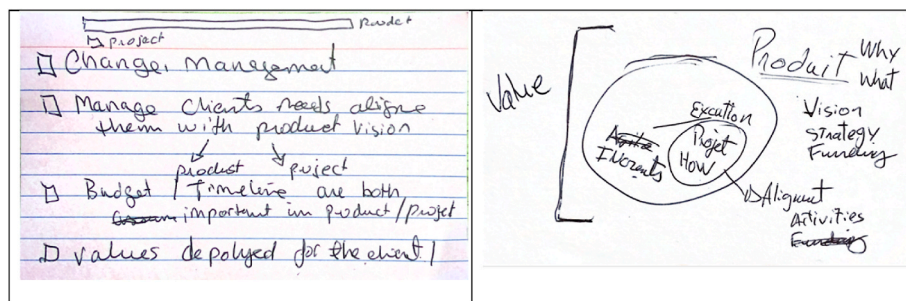 Product
Project
Change Management
Manage Clients needs aligne
them with product vision
product project
Budget / Timeline are both
important in product/projet
values depolyed for the client
Value
Produit
Why
What
Vision
Strategy
Funding
Excution
Projet
HOW
Agile
Alignment
Activities
Funding